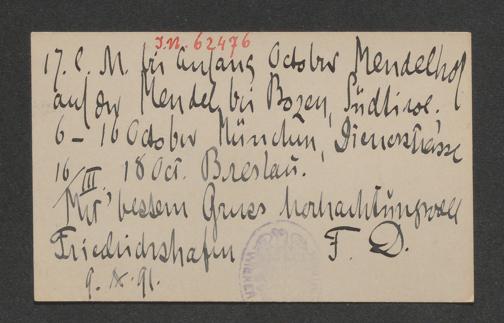 I.N. 62476
17. C. M. bis Anfang October Mendelhof
auf der Mendel bei Bozen, Südtirol.
6 – 16 October München, Dienerstrasse
16/III. 18 Oct. Breslau.
Mit bestem Gruss hochachtungsvoll
Friedrichshafen F. D.
9. IX. 91.
WIENER